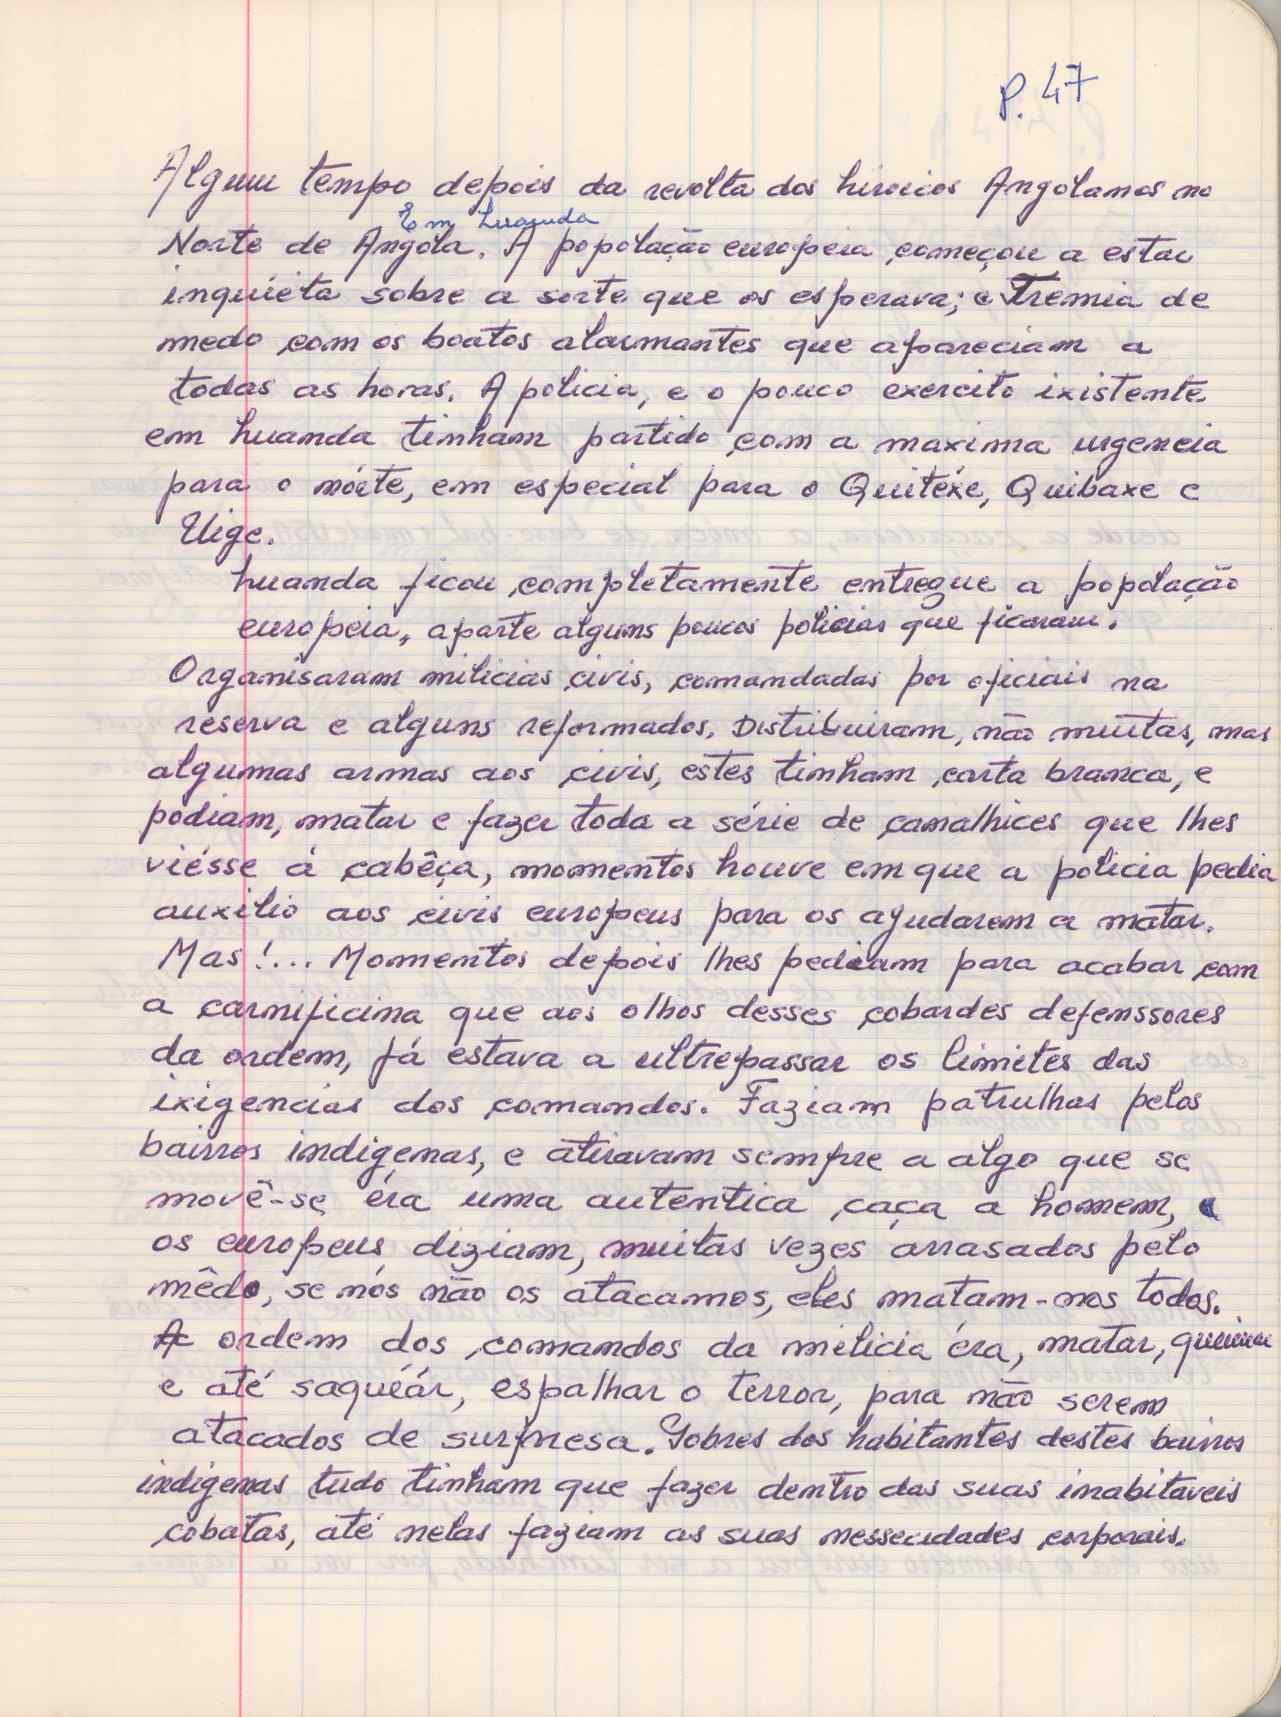 P. 47
Algum tempo depois da revolta dos hiroicos Angolanos no
Em Luanda
Norte de Angola. A popolação europeia começou a estar
inquiéta sobre a sorte que os esperava; e Tremia de
medo com os boatos alarmantes que apareciam a
todas as horas. A policia, e o pouco exercito ixistente
em Luanda tinham partido com a maxima urgencia
para o nórte, em especial para o Quitéxe, Quibaxe e
Uige.
Luanda ficou completamente entregue a popolação
europeia, aparte alguns poucos policias que ficaram.
Organisaram milicias civis, comandadas por oficiais na
reserva e alguns reformados. Distribuiram, não muitas, mas
algumas armas aos civis, estes tinham carta branca, e
podiam, matar e fazer toda a série de canalhices que lhes
viésse á cabêça, momentos houve em que a policia pedia
auxilio aos civis europeus para os ajudarem a matar.
Mas!... Momentos depois lhes pediam para acabar com
a carnificina que aos olhos desses cobardes defenssores
da ordem, já estava a ultrepassar os limites das
ixigencias dos comandos. Faziam patrulhas pelos
bairros indigenas, e atiravam sempre a algo que se
movê-se éra uma autentica caça a homem,
os europeus diziam, muitas vezes arrasados pelo
mêdo, se nós não os atacamos, eles matam-nos todos.
A ordem dos comandos da milicia éra, matar, queimar
e até saqueár, espalhar o terror, para não serem
atacados de surpresa. Pobres dos habitantes destes bairros
indigenas tudo tinham que fazer dentro das suas inabitaveis
cobatas, até nelas faziam as suas nessecidades corporais.